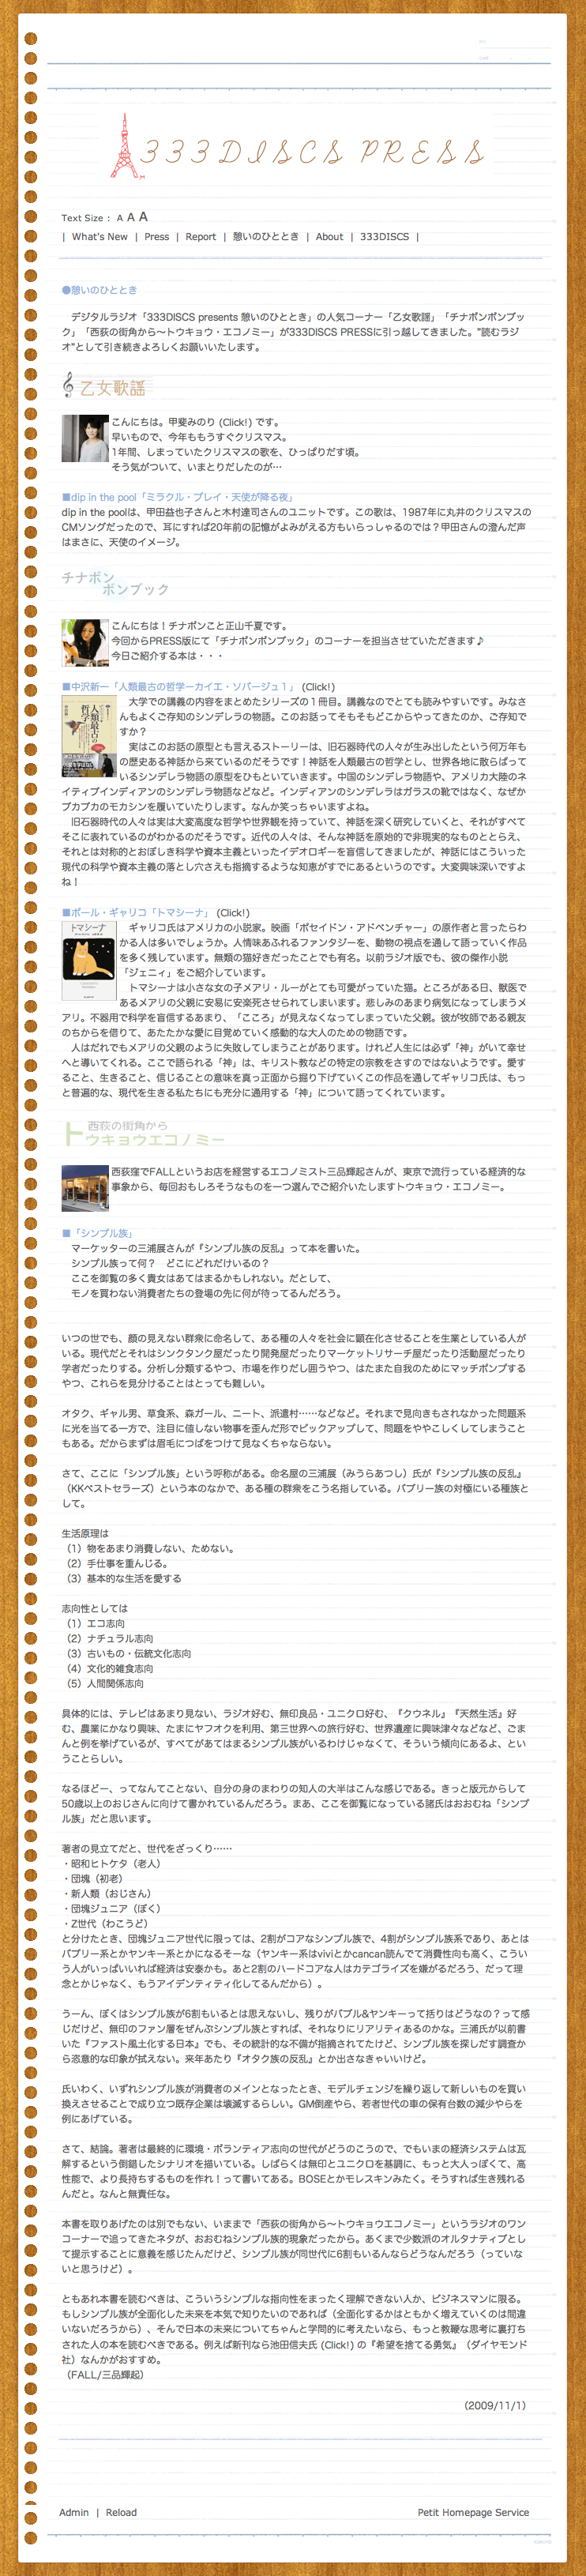 333DISCS PRESS
Text Size： A A A
| What's New | Press | Report | 憩いのひととき | About | 333DISCS |
●憩いのひととき
　デジタルラジオ「333DISCS presents 憩いのひととき」の人気コーナー「乙女歌謡」「チナボンボンブッ
ク」「西荻の街角から〜トウキョウ・エコノミー」が333DISCS PRESSに引っ越してきました。"読むラジ
オ"として引き続きよろしくお願いいたします。
乙女歌謡
こんにちは。甲斐みのり (Click!) です。
早いもので、今年ももうすぐクリスマス。
1年間、しまっていたクリスマスの歌を、ひっぱりだす頃。
そう気がついて、いまとりだしたのが…
■dip in the pool「ミラクル・プレイ・天使が降る夜」
dip in the poolは、甲田益也子さんと木村達司さんのユニットです。この歌は、1987年に丸井のクリスマスの
CMソングだったので、耳にすれば20年前の記憶がよみがえる方もいらっしゃるのでは？甲田さんの澄んだ声
はまさに、天使のイメージ。
チナボン
ボンブック
こんにちは！チナボンこと正山千夏です。
今回からPRESS版にて「チナボンボンブック」のコーナーを担当させていただきます♪
今日ご紹介する本は・・・
■中沢新一「人類最古の哲学ーカイエ・ソバージュ１」 (Click!)
　大学での講義の内容をまとめたシリーズの１冊目。講義なのでとても読みやすいです。みなさ
んもよくご存知のシンデレラの物語。このお話ってそもそもどこからやってきたのか、ご存知で
すか？
　実はこのお話の原型とも言えるストーリーは、旧石器時代の人々が生み出したという何万年も
の歴史ある神話から来ているのだそうです！神話を人類最古の哲学とし、世界各地に散らばって
いるシンデレラ物語の原型をひもといていきます。中国のシンデレラ物語や、アメリカ大陸のネ
イティブインディアンのシンデレラ物語などなど。インディアンのシンデレラはガラスの靴ではなく、なぜか
ブカブカのモカシンを履いていたりします。なんか笑っちゃいますよね。
　旧石器時代の人々は実は大変高度な哲学や世界観を持っていて、神話を深く研究していくと、それがすべて
そこに表れているのがわかるのだそうです。近代の人々は、そんな神話を原始的で非現実的なものととらえ、
それとは対称的とおぼしき科学や資本主義といったイデオロギーを盲信してきましたが、神話にはこういった
現代の科学や資本主義の落とし穴さえも指摘するような知恵がすでにあるというのです。大変興味深いですよ
ね！
人類最古の
哲学
■ポール・ギャリコ「トマシーナ」 (Click!)
トマシーナ
　ギャリコ氏はアメリカの小説家。映画「ポセイドン・アドベンチャー」の原作者と言ったらわ
かる人は多いでしょうか。人情味あふれるファンタジーを、動物の視点を通して語っていく作品
を多く残しています。無類の猫好きだったことでも有名。以前ラジオ版でも、彼の傑作小説
「ジェニィ」をご紹介しています。
　トマシーナは小さな女の子メアリ・ルーがとても可愛がっていた猫。ところがある日、獣医で
あるメアリの父親に安易に安楽死させられてしまいます。悲しみのあまり病気になってしまうメ
アリ。不器用で科学を盲信するあまり、「こころ」が見えなくなってしまっていた父親。彼が牧師である親友
のちからを借りて、あたたかな愛に目覚めていく感動的な大人のための物語です。
　人はだれでもメアリの父親のように失敗してしまうことがあります。けれど人生には必ず「神」がいて幸せ
へと導いてくれる。ここで語られる「神」は、キリスト教などの特定の宗教をさすのではないようです。愛す
ること、生きること、信じることの意味を真っ正面から掘り下げていくこの作品を通してギャリコ氏は、もっ
と普遍的な、現代を生きる私たちにも充分に通用する「神」について語ってくれています。
西荻の街角から
トウキョウエコノミー
西荻窪でFALLというお店を経営するエコノミスト三品輝起さんが、東京で流行っている経済的な
事象から、毎回おもしろそうなものを一つ選んでご紹介いたしますトウキョウ・エコノミー。
■「シンプル族」
　マーケッターの三浦展さんが『シンプル族の反乱』って本を書いた。
　シンプル族って何？　どこにどれだけいるの？
　ここを御覧の多く貴女はあてはまるかもしれない。だとして、
　モノを買わない消費者たちの登場の先に何が待ってるんだろう。
いつの世でも、顔の見えない群衆に命名して、ある種の人々を社会に顕在化させることを生業としている人が
いる。現代だとそれはシンクタンク屋だったり開発屋だったりマーケットリサーチ屋だったり活動屋だったり
学者だったりする。分析し分類するやつ、市場を作りだし囲うやつ、はたまた自我のためにマッチポンプする
やつ、これらを見分けることはとっても難しい。
オタク、ギャル男、草食系、森ガール、ニート、派遣村……などなど。それまで見向きもされなかった問題系
に光を当てる一方で、注目に値しない物事を歪んだ形でピックアップして、問題をややこしくしてしまうこと
もある。だからまずは眉毛につばをつけて見なくちゃならない。
さて、ここに「シンプル族」という呼称がある。命名屋の三浦展（みうらあつし）氏が『シンプル族の反乱』
（KKベストセラーズ）という本のなかで、ある種の群衆をこう名指している。バブリー族の対極にいる種族と
して。
生活原理は
（1）物をあまり消費しない、ためない。
（2）手仕事を重んじる。
（3）基本的な生活を愛する
志向性としては
（1）エコ志向
（2）ナチュラル志向
（3）古いもの・伝統文化志向
（4）文化的雑食志向
（5）人間関係志向
具体的には、テレビはあまり見ない、ラジオ好む、無印良品・ユニクロ好む、『クウネル』『天然生活』好
む、農業にかなり興味、たまにヤフオクを利用、第三世界への旅行好む、世界遺産に興味津々などなど、ごま
んと例を挙げているが、すべてがあてはまるシンプル族がいるわけじゃなくて、そういう傾向にあるよ、とい
うことらしい。
なるほどー、ってなんてことない、自分の身のまわりの知人の大半はこんな感じである。きっと版元からして
50歳以上のおじさんに向けて書かれているんだろう。まあ、ここを御覧になっている諸氏はおおむね「シンプ
ル族」だと思います。
著者の見立てだと、世代をざっくり……
・昭和ヒトケタ（老人）
・団塊（初老）
・新人類（おじさん）
・団塊ジュニア（ぼく）
・Z世代（わこうど）
と分けたとき、団塊ジュニア世代に限っては、2割がコアなシンプル族で、4割がシンプル族系であり、あとは
バブリー系とかヤンキー系とかになるそーな（ヤンキー系はviviとかcancan読んでて消費性向も高く、こうい
う人がいっぱいいれば経済は安泰かも。あと2割のハードコアな人はカテゴライズを嫌がるだろう、だって理
念とかじゃなく、もうアイデンティティ化してるんだから）。
うーん、ぼくはシンプル族が6割もいるとは思えないし、残りがバブル&ヤンキーって括りはどうなの？って感
じだけど、無印のファン層をぜんぶシンプル族とすれば、それなりにリアリティあるのかな。三浦氏が以前書
いた『ファスト風土化する日本』でも、その統計的な不備が指摘されてたけど、シンプル族を探しだす調査か
ら恣意的な印象が拭えない。来年あたり『オタク族の反乱』とか出さなきゃいいけど。
氏いわく、いずれシンプル族が消費者のメインとなったとき、モデルチェンジを繰り返して新しいものを買い
換えさせることで成り立つ既存企業は壊滅するらしい。GM倒産やら、若者世代の車の保有台数の減少やらを
例にあげている。
さて、結論。著者は最終的に環境・ボランティア志向の世代がどうのこうので、でもいまの経済システムは瓦
解するという倒錯したシナリオを描いている。しばらくは無印とユニクロを基調に、もっと大人っぽくて、高
性能で、より長持ちするものを作れ！って書いてある。BOSEとかモレスキンみたく。そうすれば生き残れる
んだと。なんと無責任な。
本書を取りあげたのは別でもない、いままで「西荻の街角から〜トウキョウエコノミー」というラジオのワン
コーナーで追ってきたネタが、おおむねシンプル族的現象だったから。あくまで少数派のオルタナティブとし
て提示することに意義を感じたんだけど、シンプル族が同世代に6割もいるんならどうなんだろう（っていな
いと思うけど）。
ともあれ本書を読むべきは、こういうシンプルな指向性をまったく理解できない人か、ビジネスマンに限る。
もしシンプル族が全面化した未来を本気で知りたいのであれば（全面化するかはともかく増えていくのは間違
いないだろうから）、そんで日本の未来についてちゃんと学問的に考えたいなら、もっと教鞭な思考に裏打ち
された人の本を読むべきである。例えば新刊なら池田信夫氏 (Click!) の『希望を捨てる勇気』（ダイヤモンド
社）なんかがおすすめ。
（FALL/三品輝起）
（2009/11/1）
Admin | Reload
Petit Homepage Service